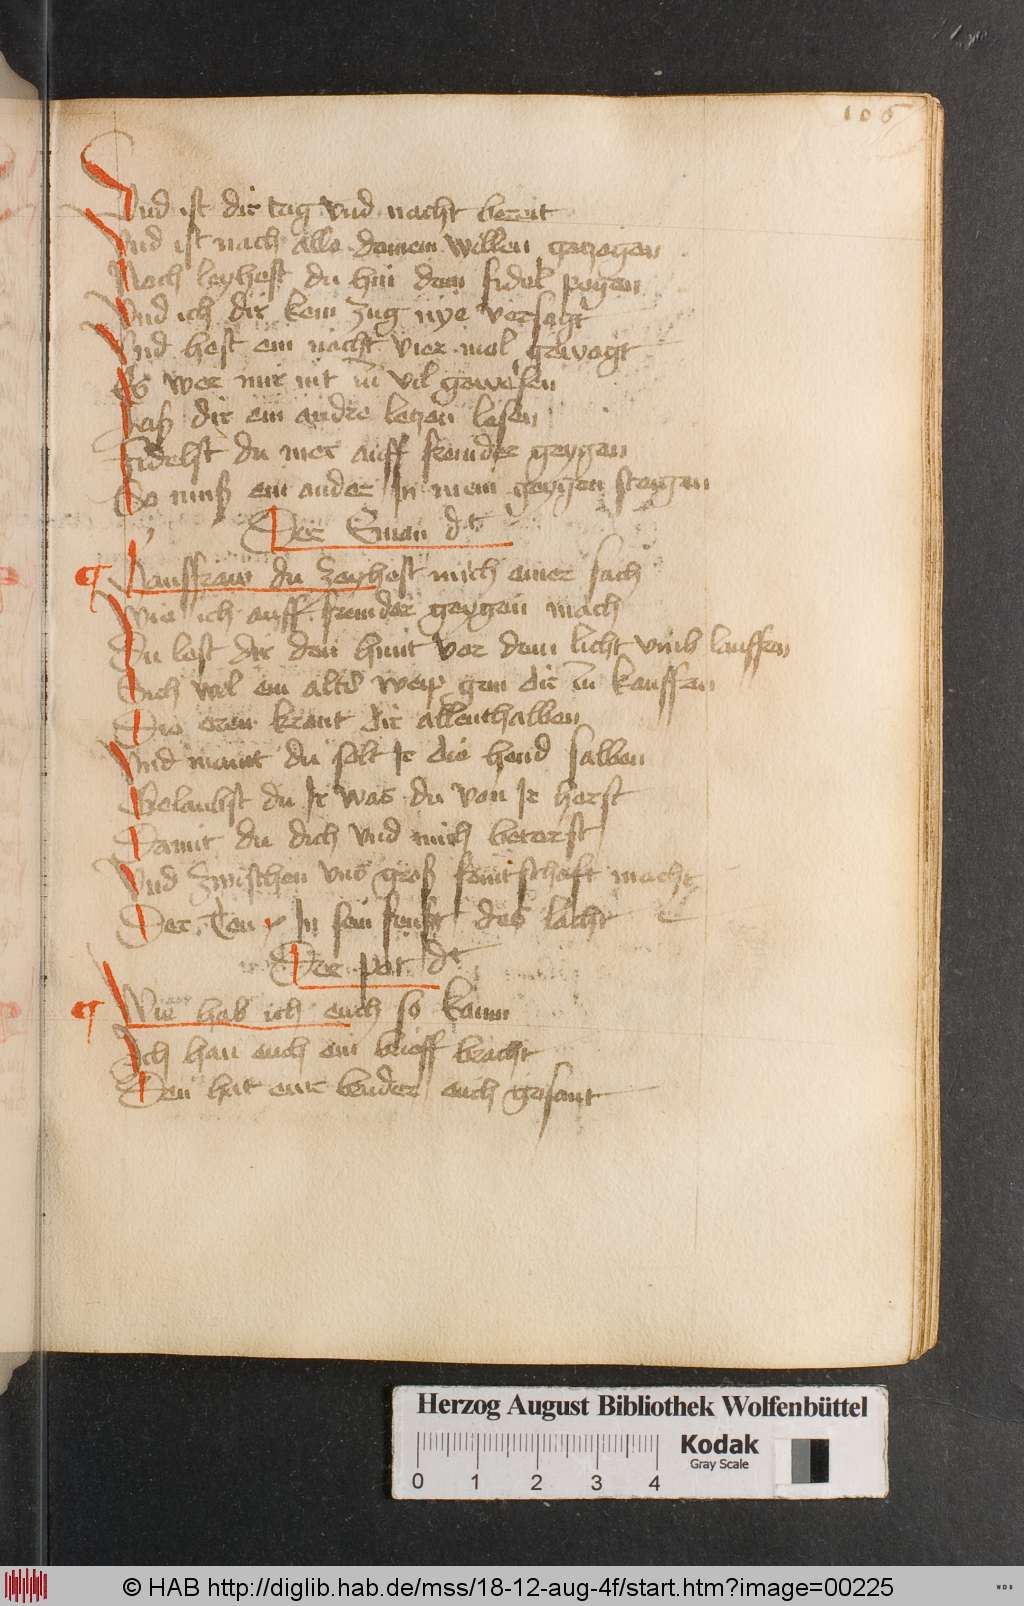 106
Vnd ist dir tag vnd nacht bereit
Vnd ist nach alle deinem willen gezogen
Noch leyhest du hin dein fidel pogen
Vnd ich dir kein zug nye versagt
Vnd hest ein nacht vier mol gewagt
Es wer mir nit zu vil gewesen
Jch dir ein andre letzen lesen
Fidelst du mer auff fremder geygen
So muß ein ander Jn mein geygen steygen
Der Eman dt
Hausfraw du zeyhest mich einer sach
Wie ich auff fremder geygen mach
Du lest dir den hunt vor dem licht vmb lauffen
Dich wil ein altes weip gen dir zu kauffen
Die oren kraut dir allenthalben
Vnd maint du solt Jr die hend salben
Gelaubst du Jr was du von Jr horst
Damit du dich vnd mich betorst
Vnd zwischen vns groß feintschaft macht
Der Teufel In sein feust des lacht
Der pot dt
Wie hab ich euch so kaum
Ich han euch ein brieff bracht
Den hat eur bruder euch gesant
Herzog August Bibliothek Wolfenbüttel
0 1 2 3 4
Kodak
Gray Scale
© HAB http://diglib.hab.de/mss/18-12-aug-4f/start.htm?image=00225